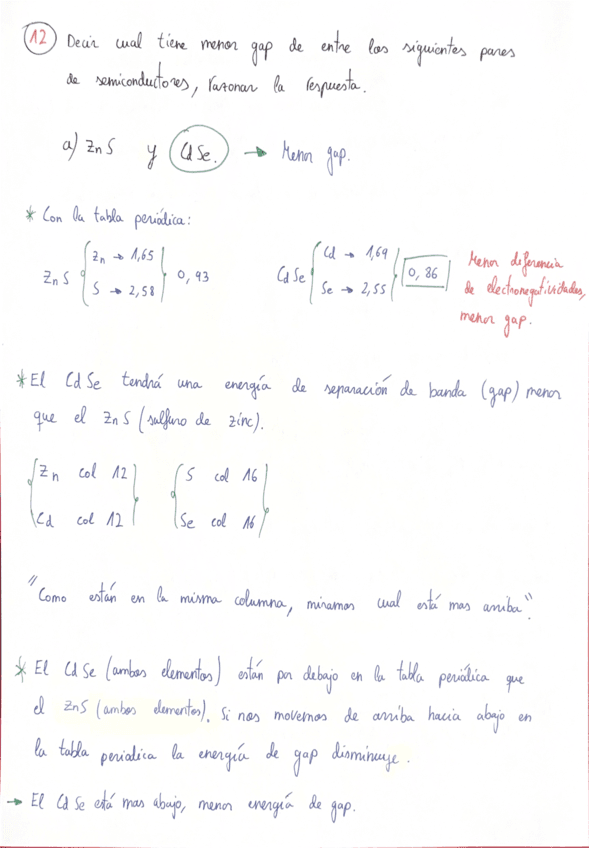 12 Decir cual tiene menor gap de entre los siguientes pares
de semiconductores, razonar la respuesta.
a) ZnS y CdSe. → Menor gap.
* Con la tabla periálica:
ZnS { Zn → 1,65 S → 2,58 } 0,93
CdSe { Cd → 1,69 Se → 2,55 } 0,86
Menor diferencia
de electronegatividades,
menor gap.
* El CdSe tendrá una energía de separación de banda (gap) menor
que el ZnS (sulfuro de zinc).
Zn col 12 S col 16
Cd col 12 Se col 16
"Como están en la misma columna, miramos cual está mas arriba"
* El CdSe (ambos elementos) están por debajo en la tabla periálica que
el ZnS (ambos elementos). Si nos movemos de arriba hacia abajo en
la tabla periodica la energía de gap disminuye.
→ El CdSe está mas abajo, menor energía de gap.